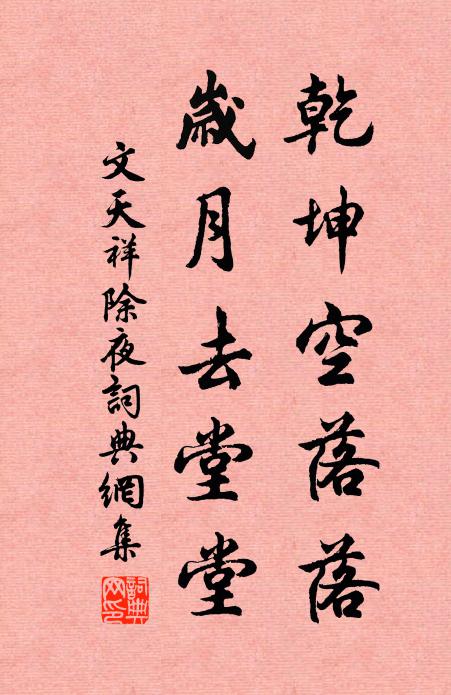 乾坤空落落
歲月去堂堂
文天祥除夜詞典網集
詞典網印